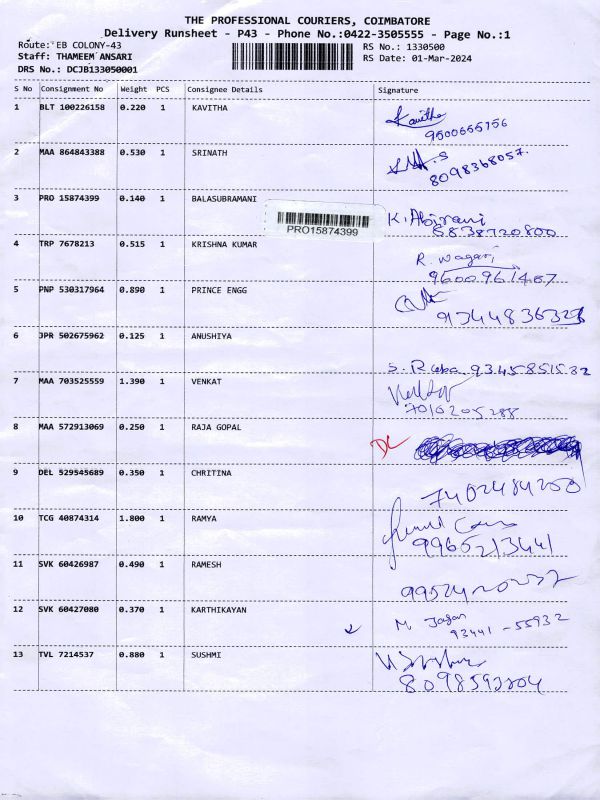 THE PROFESSIONAL COURIERS, COIMBATORE
Delivery Runsheet - P43 - Phone No.:0422-3505555 - Page No.:1
Route: EB COLONY-43
RS No.: 1330500
Staff: THAMEEM ANSARI
RS Date: 01-Mar-2024
DRS No.: DCJB133050001
S No Consignment No Weight PCS Consignee Details Signature
1 BLT 100226158 0.220 1 KAVITHA Kavitha
9500655756
2 MAA 864843388 0.530 1 SRINATH
8098368057.
3 PRO 15874399 0.140 1 BALASUBRAMANI K. Abirani
8838720800
PRO15874399
4 TRP 7678213 0.515 1 KRISHNA KUMAR R. Nagaraj
9600961487
5 PNP 530317964 0.890 1 PRINCE ENGG
9344836323
6 JPR 502675962 0.125 1 ANUSHIYA
S. Ruba 9345851532
7 MAA 703525559 1.390 1 VENKAT
7010205288
8 MAA 572913069 0.250 1 RAJA GOPAL DL
9 DEL 529545689 0.350 1 CHRITINA
7402484250
10 TCG 40874314 1.800 1 RAMYA
9965213441
11 SVK 60426987 0.490 1 RAMESH
12 SVK 60427080 0.370 1 KARTHIKAYAN M Jagan
93441-55932
13 TVL 7214537 0.880 1 SUSHMI
8098593204